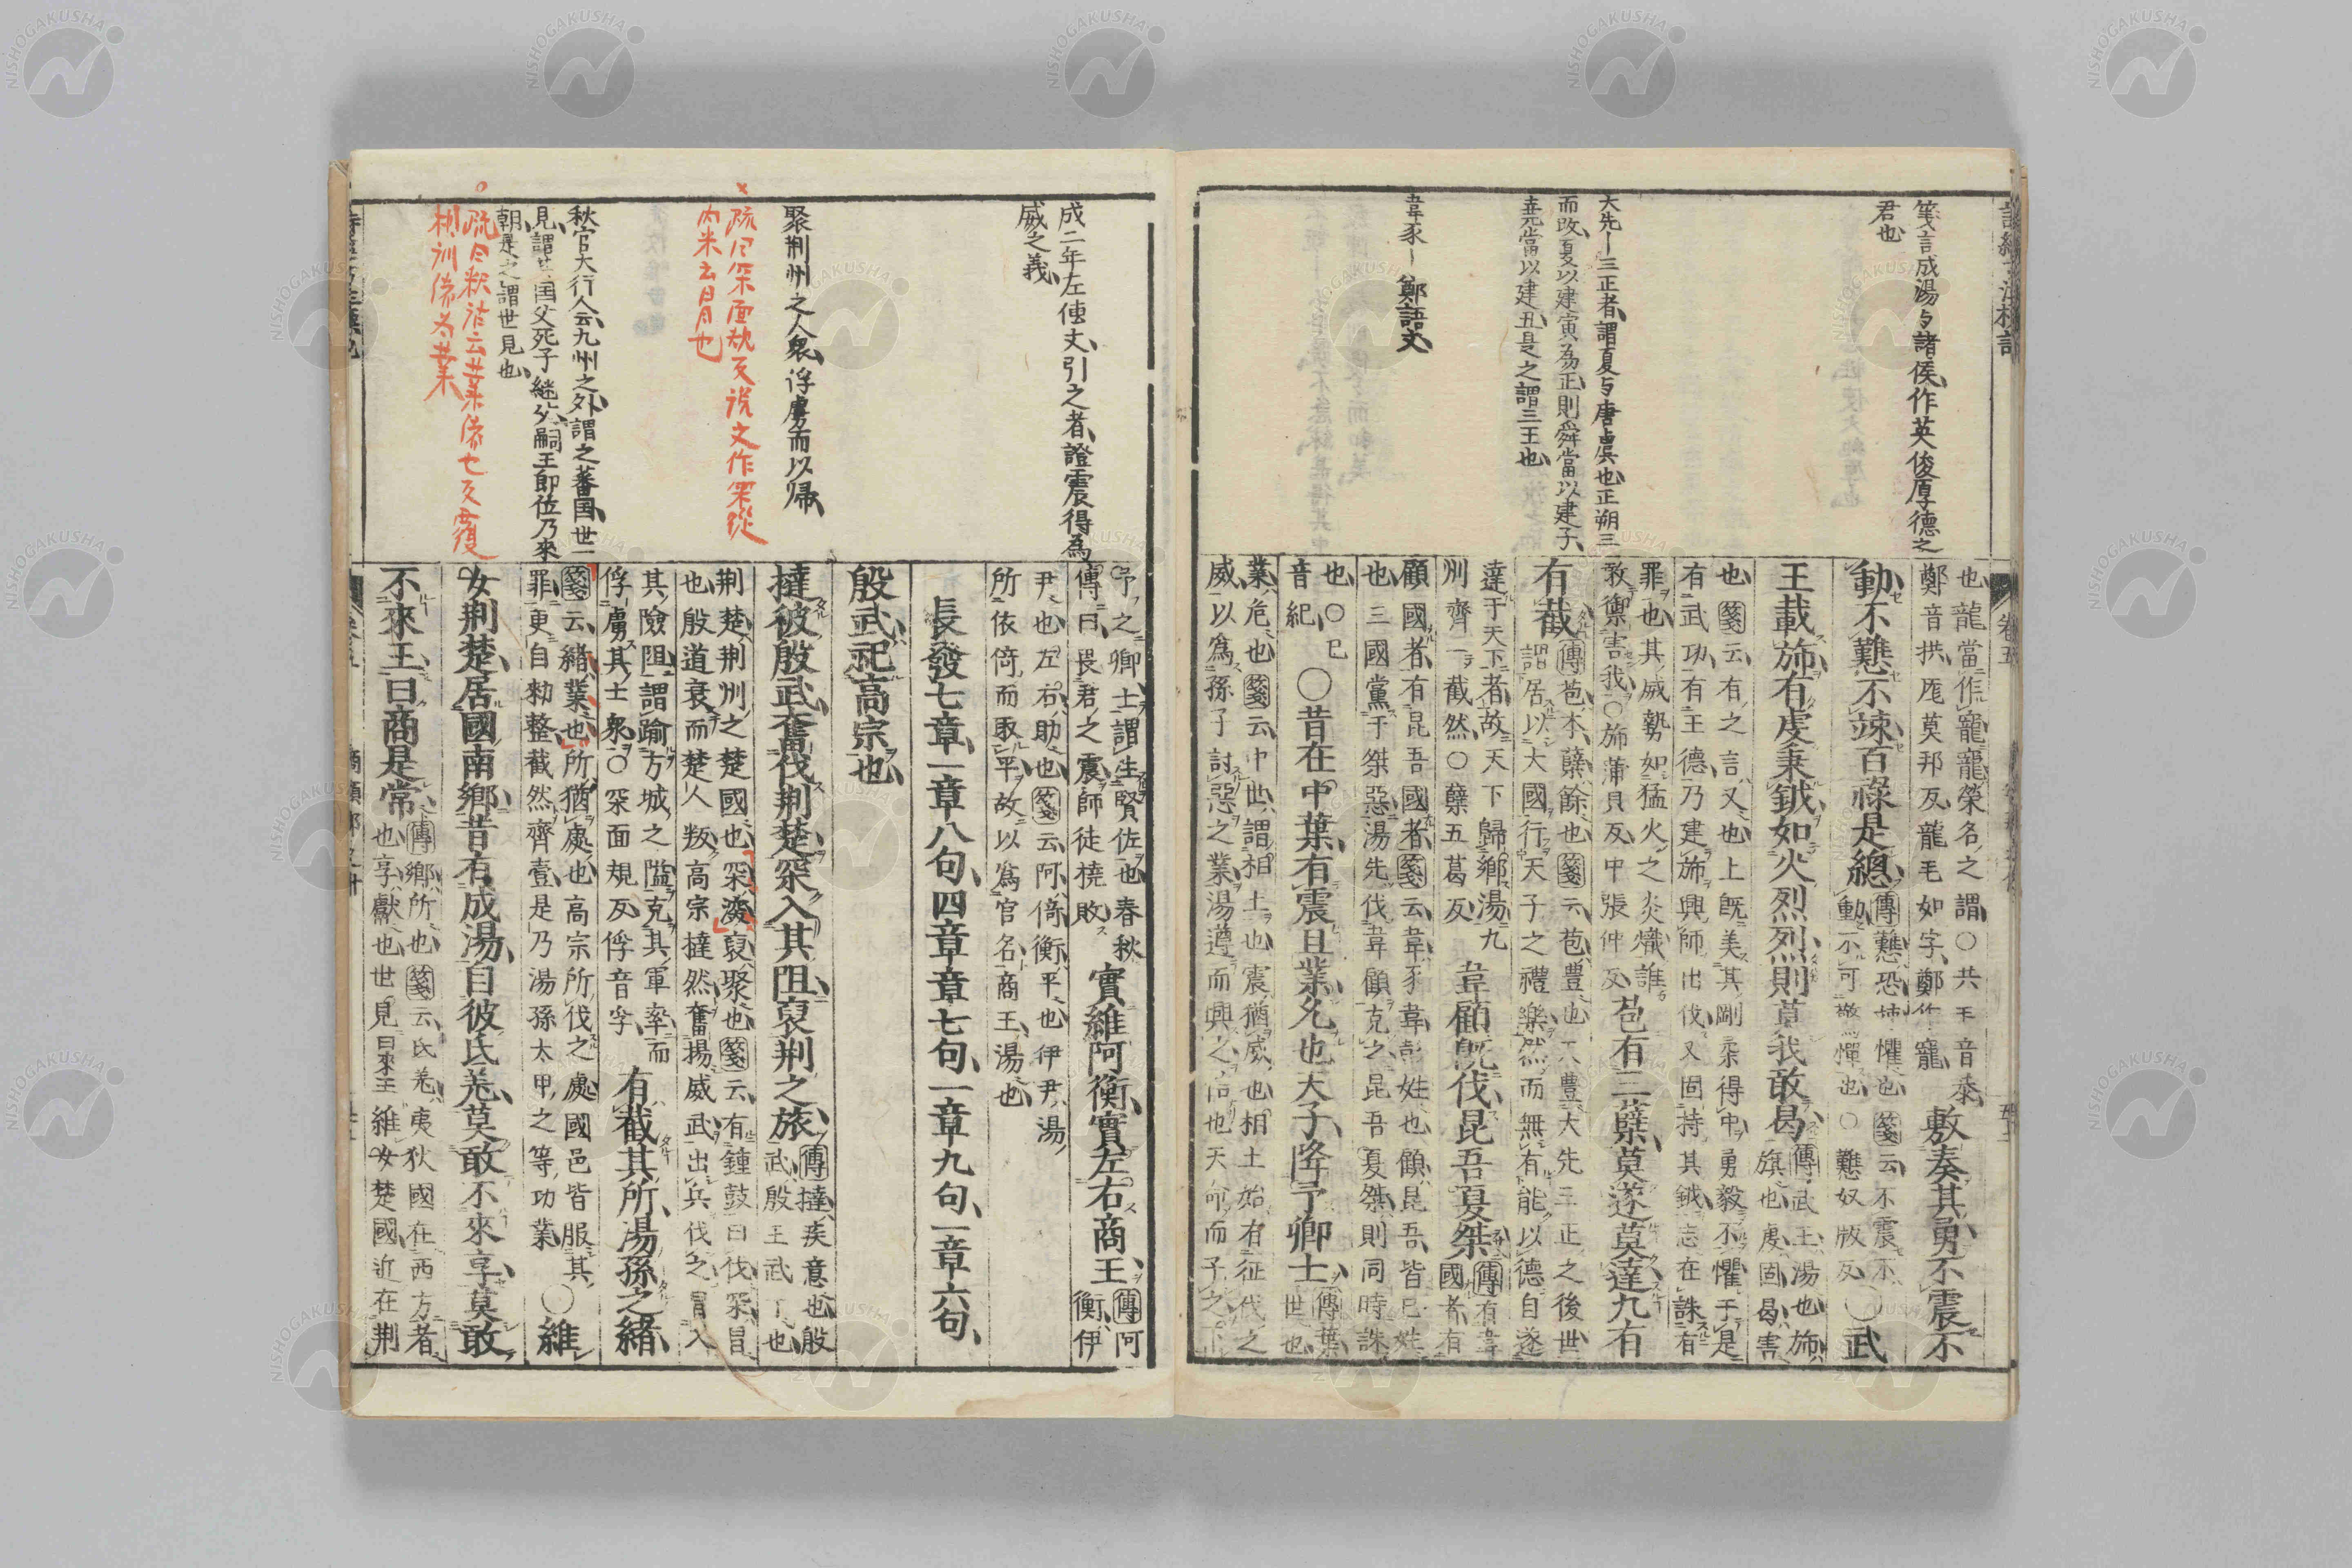 箋言成湯与諸侯作英俊厚德之
君也
大先〡三正者謂夏与唐虞也正朔三
而改夏以建寅為正則舜當以建子
堯當以建丑是之謂三王也
韋豕〡鄭語文
也龍當作寵寵榮名之謂○共王音恭
鄭音拱厖莫邦反龍毛如字鄭作寵
敷奏其勇不震不
動不戁不竦百祿是總
傳戁恐竦懼也箋云不震不
動不可驚憚也○戁奴版反○武
王載斾有虔秉鉞如火烈烈則莫我敢曷
傳武王湯也斾
旗也虔固曷害
也箋云有之言又也上既美其剛柔得中勇毅不懼于是
有武功有王德乃建斾興師出伐又固持其鉞志在誅有
罪也其威勢如猛火之炎熾誰
敢禦害我○斾蒲貝反中張仲反
苞有三蘗莫遂莫達九有
有截
傳苞本蘗餘也箋云苞豊也天豊大先三正之後世
謂居以大國行天子之禮樂然而無有能以德自遂
達于天下者故天下歸鄉湯九
州齊一截然○蘗五葛反
韋顧既伐昆吾夏桀
傳有韋
國者有
顧國者有昆吾國者箋云韋豕韋彭姓也顧昆吾皆己姓
也三國黨于桀惡湯先伐韋顧克之昆吾夏桀則同時誅
也○己
音紀
○昔在中葉有震且業允也天子降予卿士
傳葉
世也
業危也箋云中世謂相土也震猶威也相土始有征伐之
威以為孫子討惡之業湯遵而興之信也天命而子之下
成二年左傳文引之者證震得為
威之義
聚荆州之人衆俘虜而以歸
疏曰罙面規反説文作罙從
内米云冒也
秋官大行人云九州之外謂之蕃国世一
見謂其国父死子継及嗣王即位乃來
朝是之謂世見也
疏曰釈詁云業緒也反覆
相訓緒为業
予之卿士謂生賢佐也春秋
傳曰畏君之震師徒橈敗
實維阿衡實左右商王
傳阿
衡伊
尹也左右助也箋云阿倚衡平也伊尹湯
所依倚而取平故以為官名商王湯也
長發七章一章八句四章章七句一章九句一章六句
殷武祀高宗也
撻彼殷武奮伐荆楚罙入其阻裒荆之旅
傳撻疾意也殷
武殷王武丁也
荆楚荆州之楚國也罙深裒聚也箋云有鐘鼓曰伐罙冒
也殷道衰而楚人叛高宗撻然奮揚威武出兵伐之冒入
其險阻謂踰方城之隘克其軍率而
俘虜其士衆○罙面規反俘音孚
有截其所湯孫之緒
箋云緒業也所猶處也高宗所伐之處國邑皆服其
罪更自勑整截然齊壹是乃湯孫太甲之等功業
○維
女荆楚居國南鄉昔有成湯自彼氐羌莫敢不來享莫敢
不來王曰商是常
傳鄉所也箋云氐羌夷狄國在西方者
也享獻也世見曰來王維女楚國近在荆